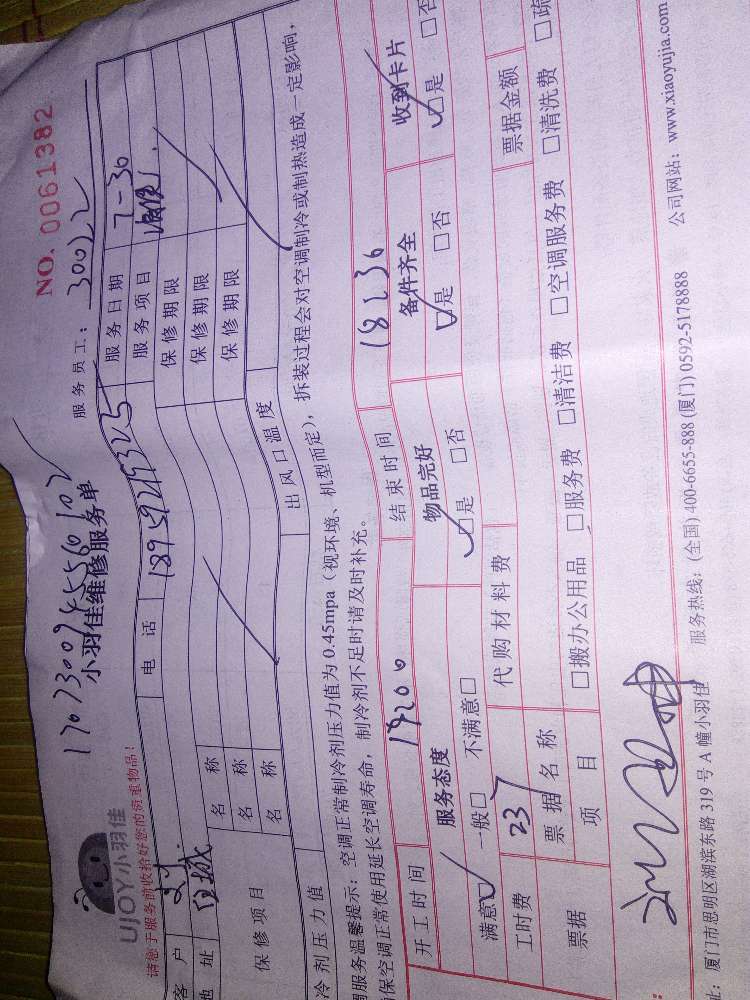 NO. 0061382
小羽佳维修服务单
UJOY小羽佳
服务员工： 30022
请您于服务前收拾好您的贵重物品！
客 户 电 话 18959219325 服务日期 7-30
地 址 服务项目
保修项目 名 称 保修期限
名 称 保修期限
名 称 保修期限
冷剂压力值 出风口温度
调服务温馨提示：空调正常制冷剂压力值为0.45mpa（视环境、机型而定），拆装过程会对空调制冷或制热造成一定影响，
确保空调正常使用延长空调寿命，制冷剂不足时请及时补充。
开工时间 结束时间
服务态度 物品完好 备件齐全 收到卡片
满意☑ 一般□ 不满意□ ☑是 □否 ☑是 □否 ☑是 □否
工时费 237 代购材料费 票据金额
票据 票据名称
项 目 □搬办公用品 □服务费 □清洁费 □空调服务费 □清洗费 □疏
址：厦门市思明区湖滨东路 319 号 A 幢小羽佳 服务热线：(全国) 400-6655-888 (厦门) 0592-5178888 公司网站：www.xiaoyujia.com